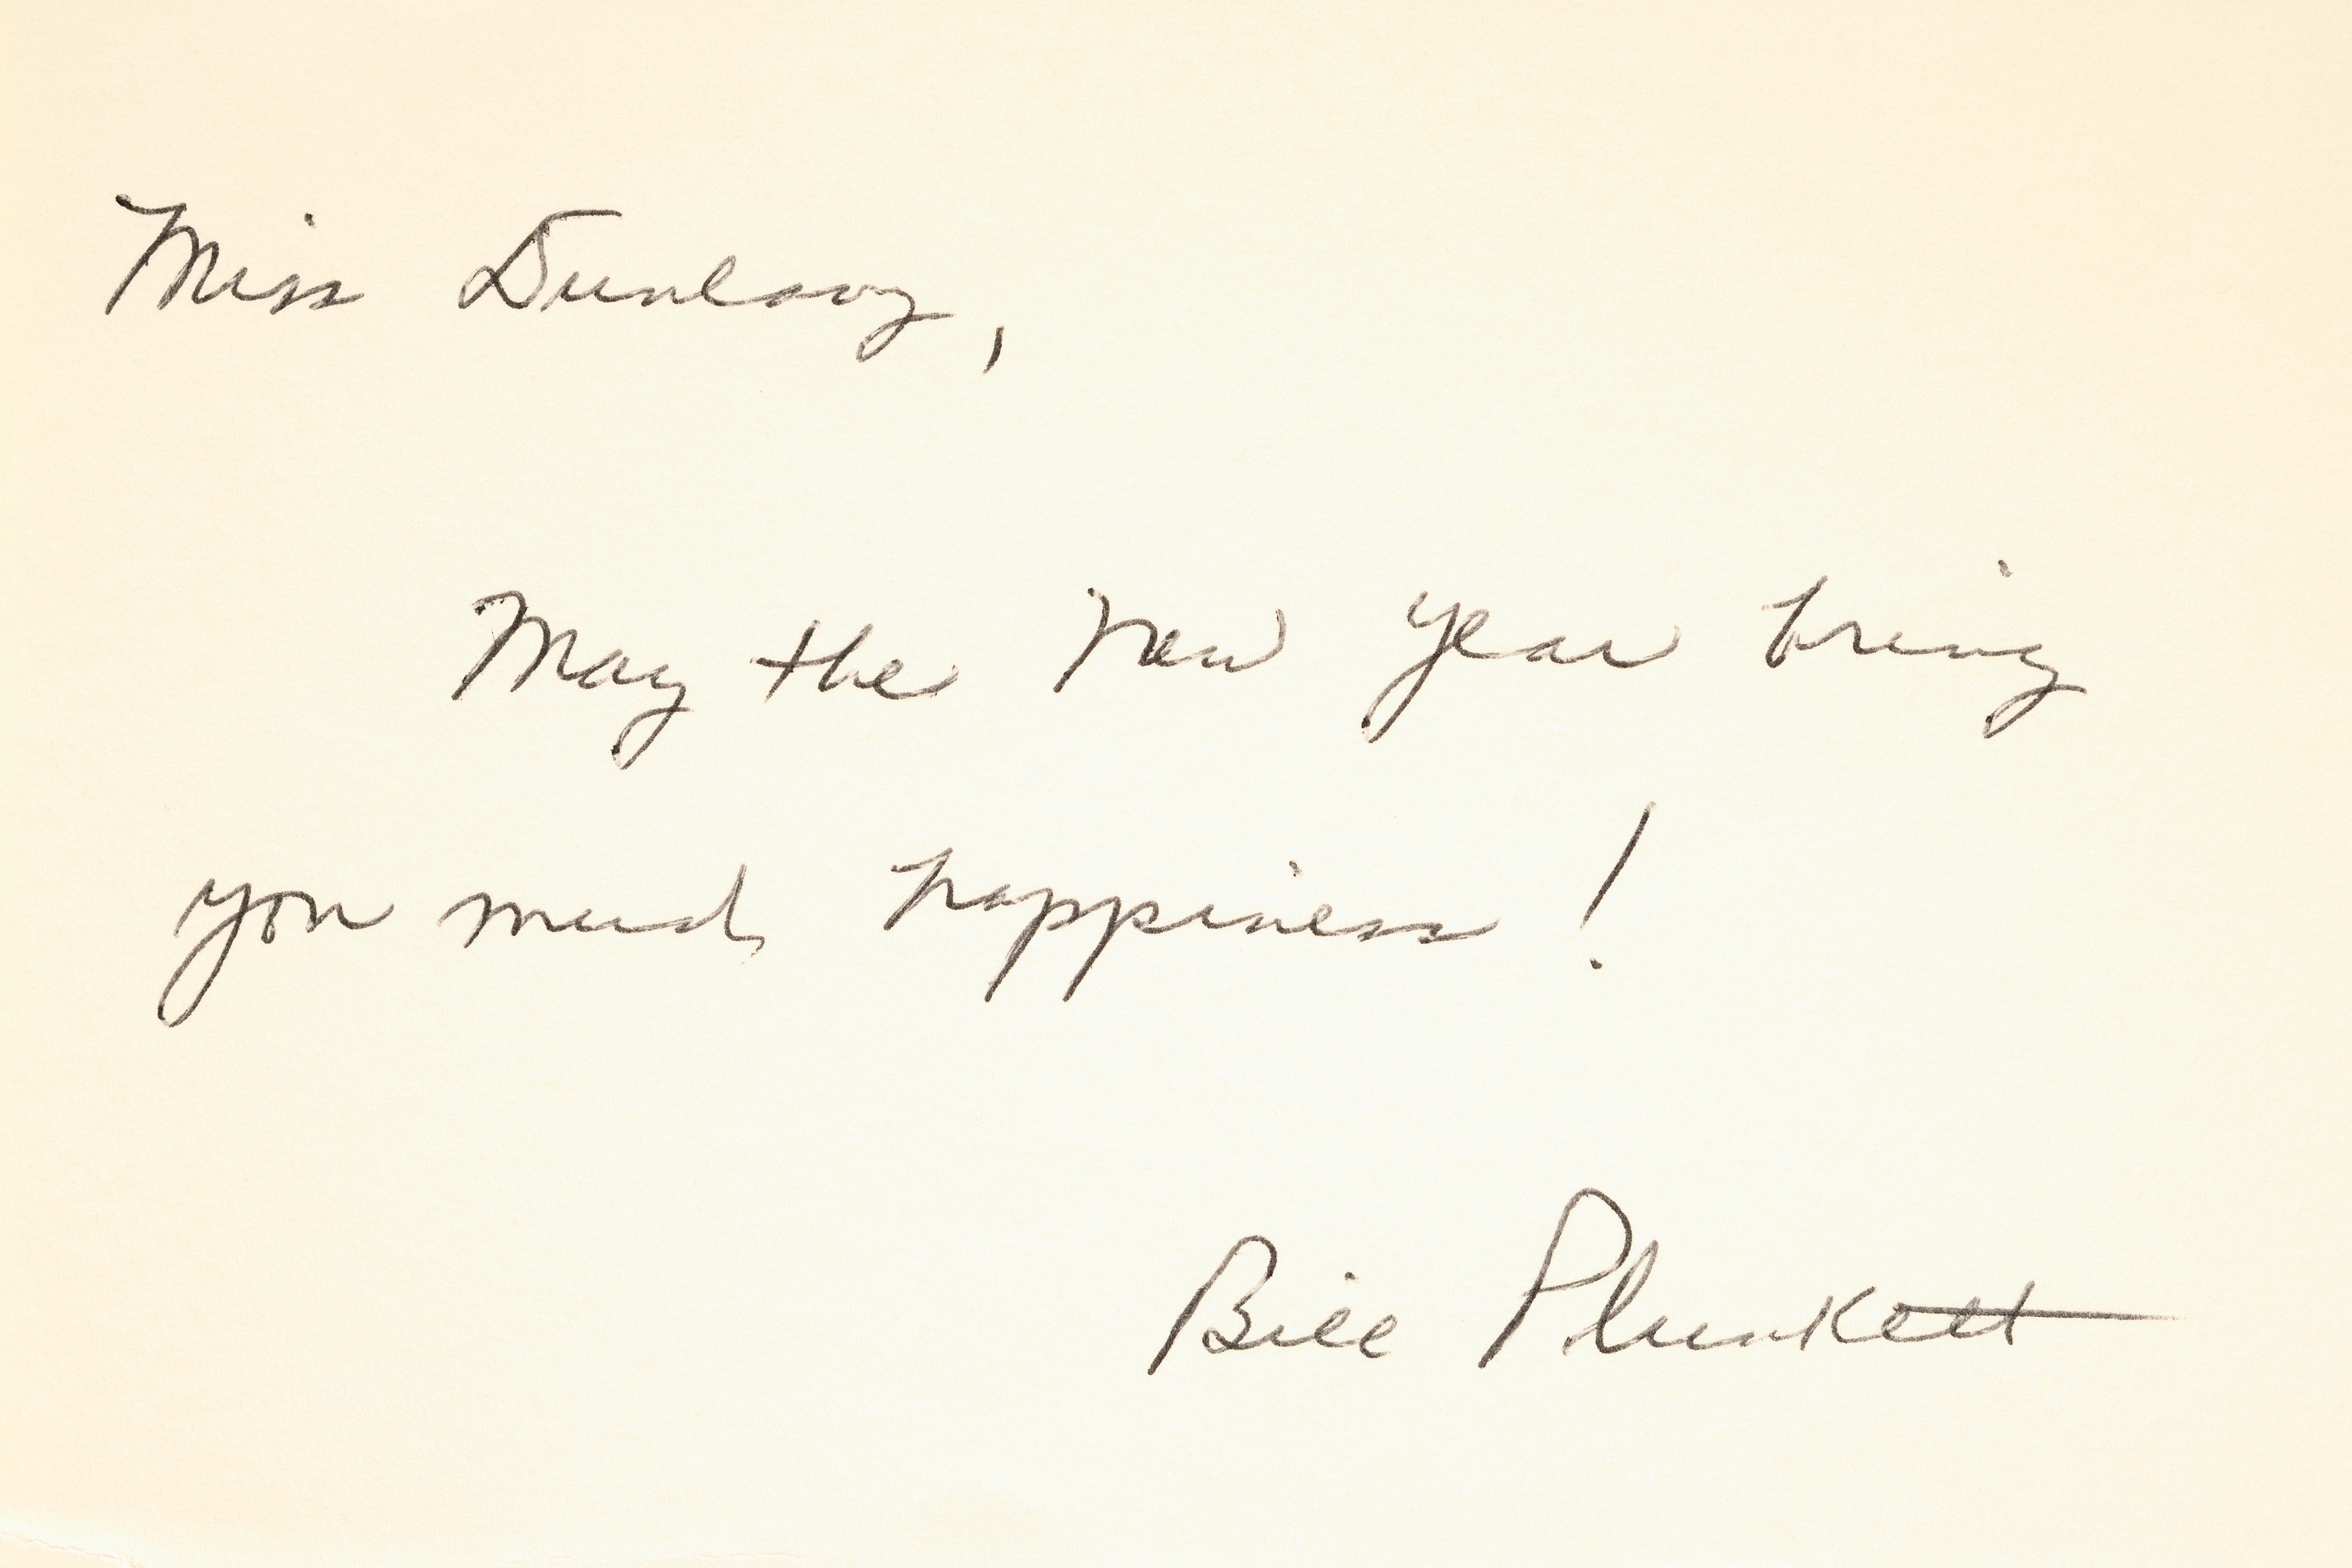 Miss Dunlavy,
May the New Year bring
you much happiness!
Bill Plunkett